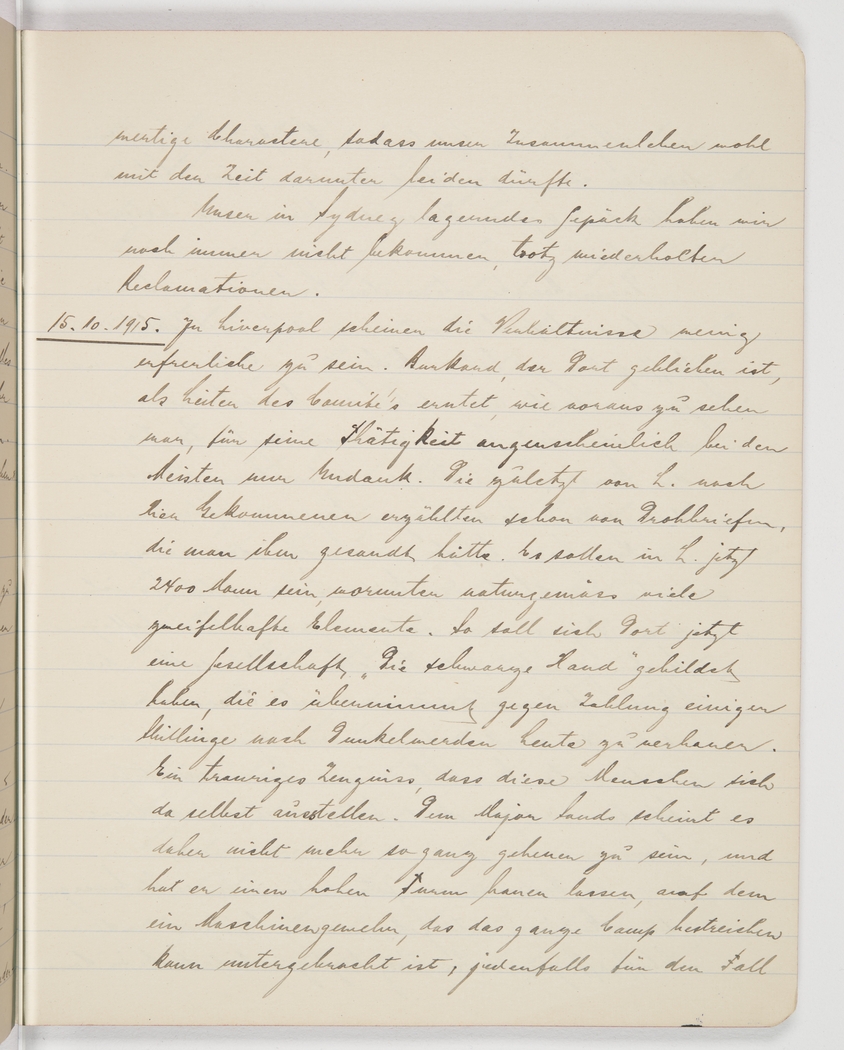 wertige Charactere, sodass unser Zusammenleben wohl
mit der Zeit darunter leiden dürfte.
Unser in Sydney lagerndes Gepäck haben wir
noch immer nicht bekommen, trotz wiederholten
Reclamationen.
15.10.1915. In Liverpool scheinen die Verhältnisse wenig
erfreuliche zu sein. Burkard, der Dort geblieben ist,
als Leiter des Comité's erntet, wie voraus zu sehen
war, für seine Thätigkeit augenscheinlich bei den
Meisten nur Undank. Die zuletzt von L. nach
hier Gekommenen erzählten schon von Drohbriefen,
die man ihm gesandt hätte. Es sollen in L. jetzt
2400 Mann sein, worunter naturgemäss viele
zweifelhafte Elemente. So soll sich Dort jetzt
eine Gesellschaft, „Die schwarze Hand" gebildet
haben, die es übernimmt gegen Zahlung einiger
Shillinge nach Dunkelwerden Leute zu verhauen.
Ein trauriges Zeugniss, dass diese Menschen sich
da selbst ausstellen. Dem Major Sands scheint es
daher nicht mehr so ganz geheuer zu sein, und
hat er einen hohen Turm bauen lassen, auf dem
ein Maschinengewehr, das das ganze Camp bestreichen
kann untergebracht ist, jedenfalls für den Fall